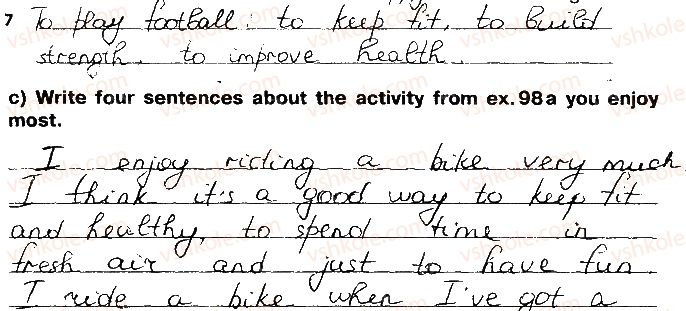 7 To play football: to keep fit, to build
strength, to improve health.
c) Write four sentences about the activity from ex. 98a you enjoy
most.
I enjoy riding a bike very much
I think it's a good way to keep fit
and healthy, to spend time in
fresh air and just to have fun.
I ride a bike when I've got a